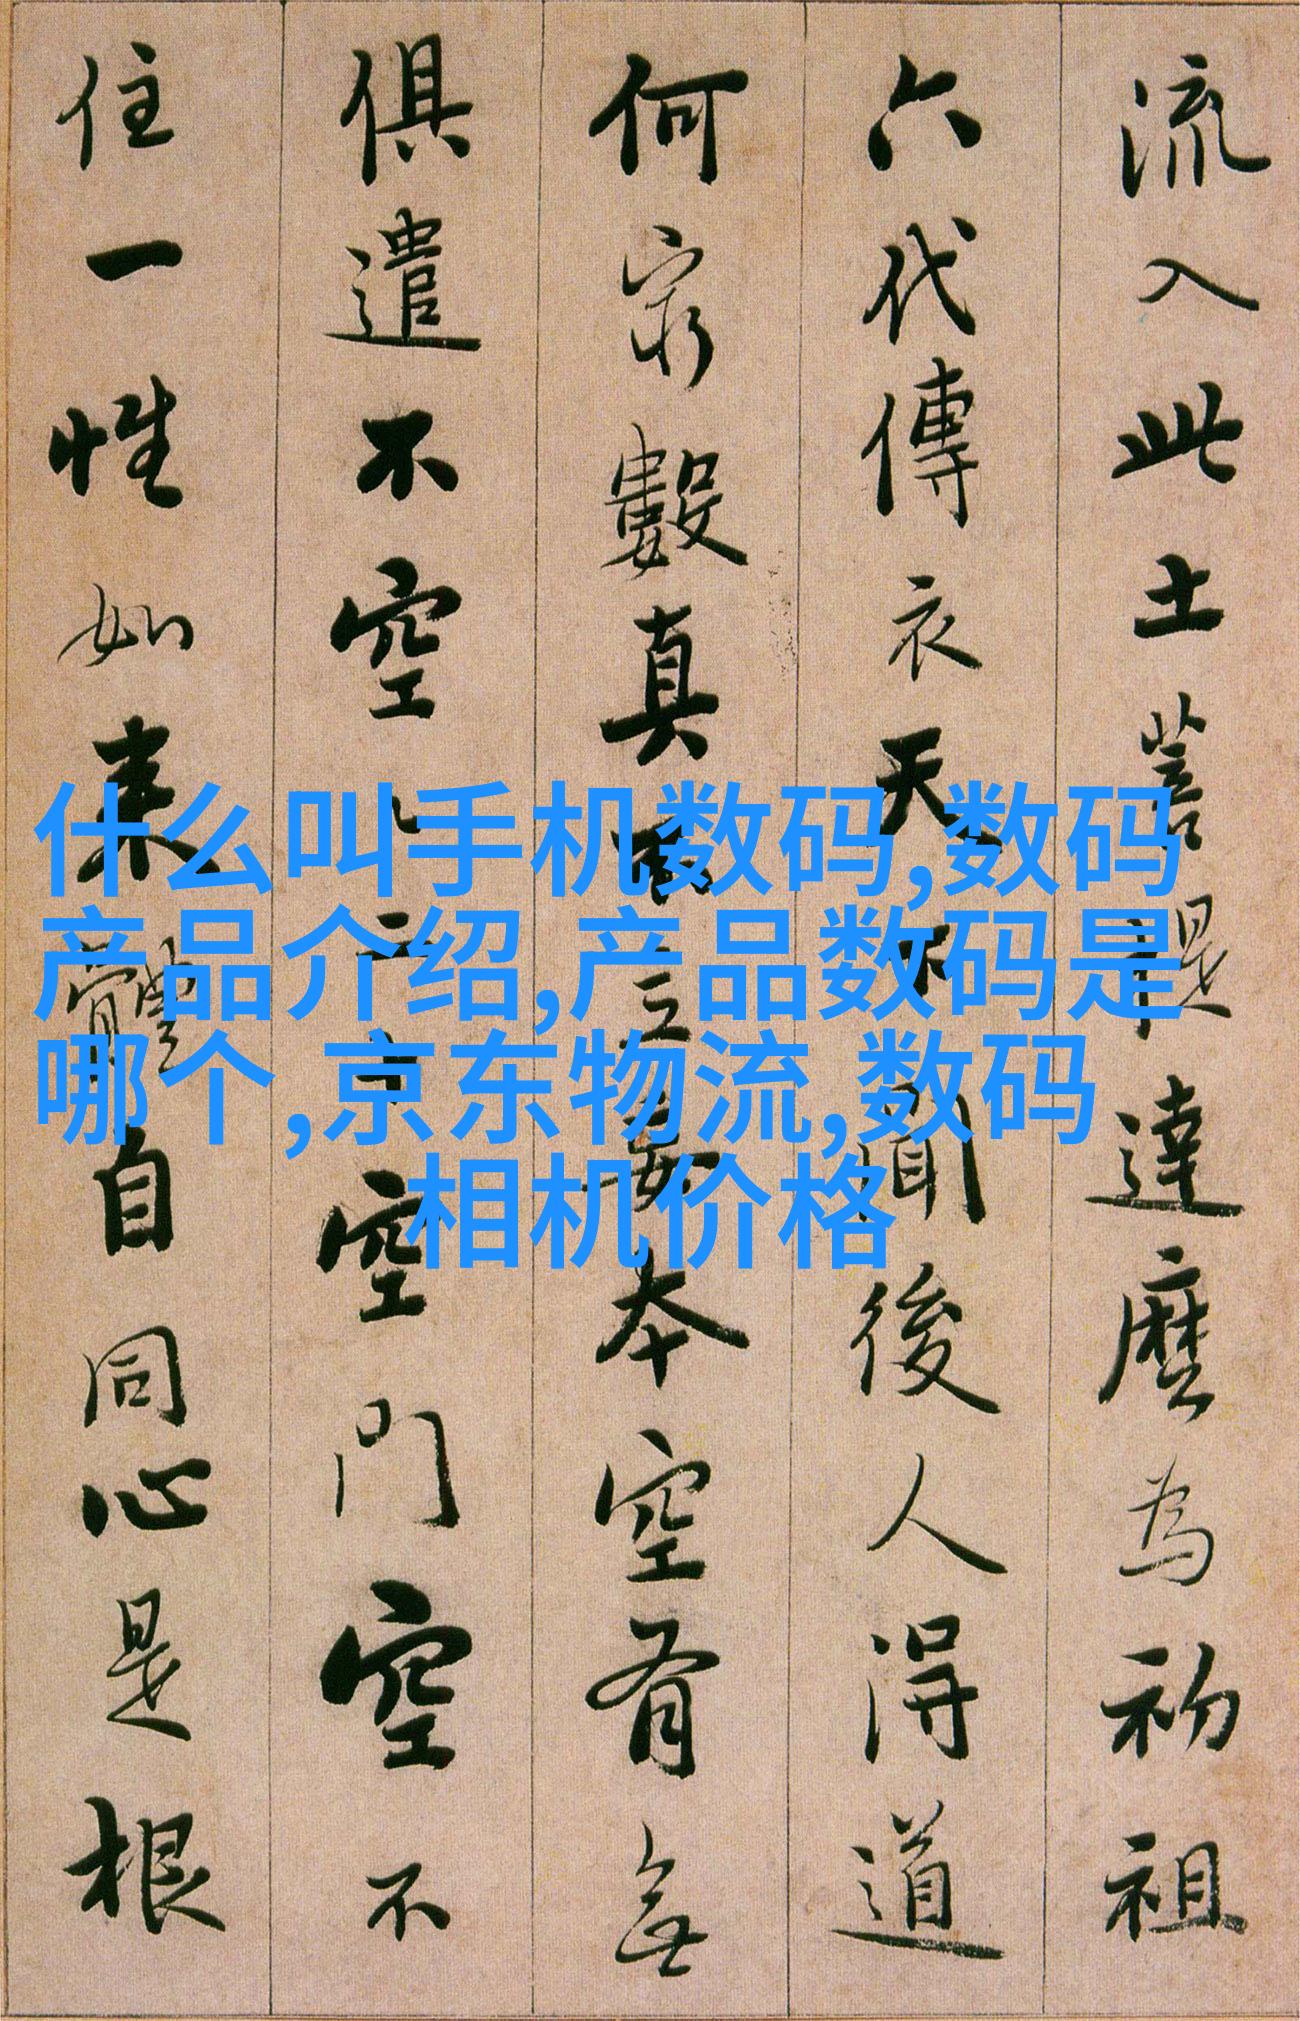 流入此土菩提達麼為初祖
六代傳衣天下聞後人得道
何窮數真不立妄本空有無
俱遣不空々二十空門空不
住一性如来體自同心是根
什么叫手机数码,数码
产品介绍,产品数码是
哪个,京东物流,数码
相机价格